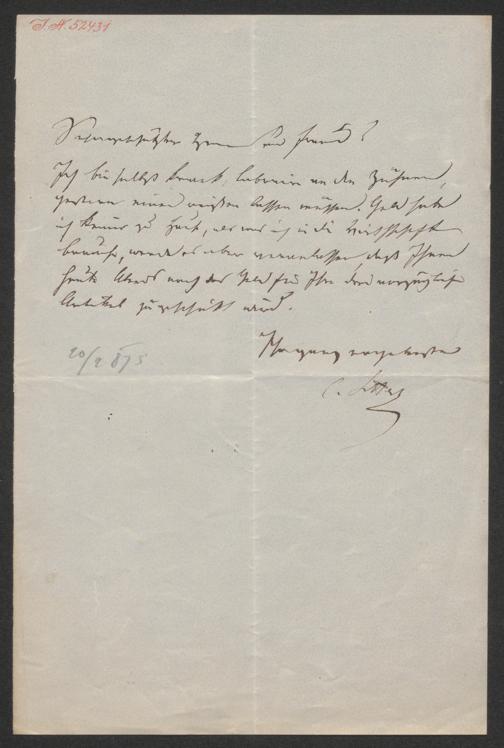 I. N. 52431
Hochgeschätzter Herr und Freund!
Ich bin selbst krank, laborire an den Zähnen,
gestern einen reißen lassen müssen. Geld habe
ich keines zu Haus, als was ich in die Wirthschaft
brauche, werde es aber veranlassen daß Ihnen
heute Abends noch das Geld für Ihre drei vorzügliche
Artikel zugeschickt wird.
Ihr ganz ergebenster
C.
20/2 875